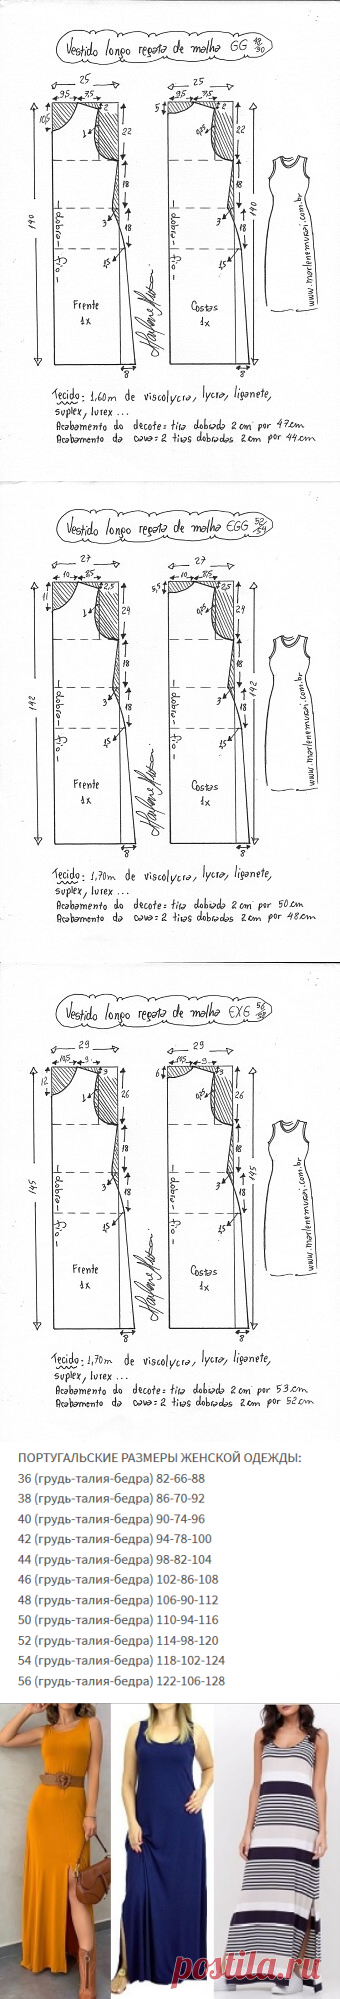 Vestido longo regata de malha GG 48/50
25
25
9,5 7,5 2
9,5 7,5 2
10,5
5
1
0,75
22
22
18
18
190
190
3
3
18
18
1,5
1,5
-dobra-fio-
-dobra-fio-
Frente
1x
Costas
1x
8
8
www.marlenemukai.com.br
Tecido: 1,60m de viscolycra, lycra, liganete,
suplex, lurex ...
Acabamento do decote = tira dobrada 2 cm por 47cm
Acabamento da cava = 2 tiras dobradas 2 cm por 44cm
Vestido longo regata de malha EGG 52/54
27
27
10 8,5 2,5
10 8,5 2,5
11
5,5
1
0,75
24
24
18
18
192
192
3
3
18
18
1,5
1,5
-dobra-fio-
-dobra-fio-
Frente
1x
Costas
1x
8
8
www.marlenemukai.com.br
Tecido: 1,70m de viscolycra, lycra, liganete,
suplex, lurex ...
Acabamento do decote = tira dobrada 2 cm por 50cm
Acabamento da cava = 2 tiras dobradas 2 cm por 48cm
Vestido longo regata de malha EXG 56/58
29
29
10,5 9 3
10,5 9 3
12
6
1
0,75
26
26
18
18
145
145
3
3
18
18
1,5
1,5
-dobra-fio-
-dobra-fio-
Frente
1x
Costas
1x
8
8
www.marlenemukai.com.br
Tecido: 1,70m de viscolycra, lycra, liganete,
suplex, lurex ...
Acabamento do decote = tira dobrada 2 cm por 53cm
Acabamento da cava = 2 tiras dobradas 2 cm por 52cm
ПОРТУГАЛЬСКИЕ РАЗМЕРЫ ЖЕНСКОЙ ОДЕЖДЫ:
36 (грудь-талия-бедра) 82-66-88
38 (грудь-талия-бедра) 86-70-92
40 (грудь-талия-бедра) 90-74-96
42 (грудь-талия-бедра) 94-78-100
44 (грудь-талия-бедра) 98-82-104
46 (грудь-талия-бедра) 102-86-108
48 (грудь-талия-бедра) 106-90-112
50 (грудь-талия-бедра) 110-94-116
52 (грудь-талия-бедра) 114-98-120
54 (грудь-талия-бедра) 118-102-124
56 (грудь-талия-бедра) 122-106-128
postila.ru